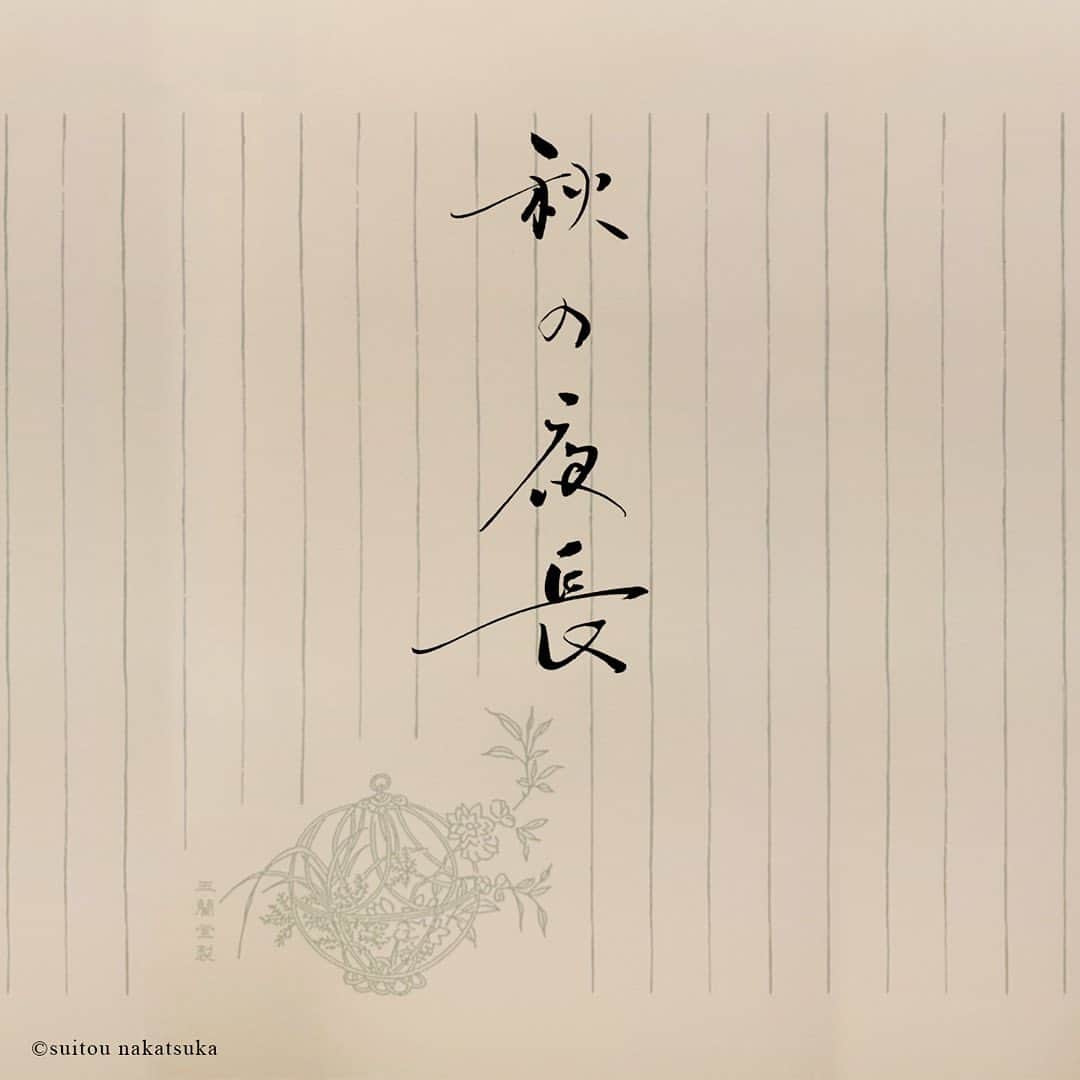 秋の夜長
玉蘭堂製
©suitou nakatsuka